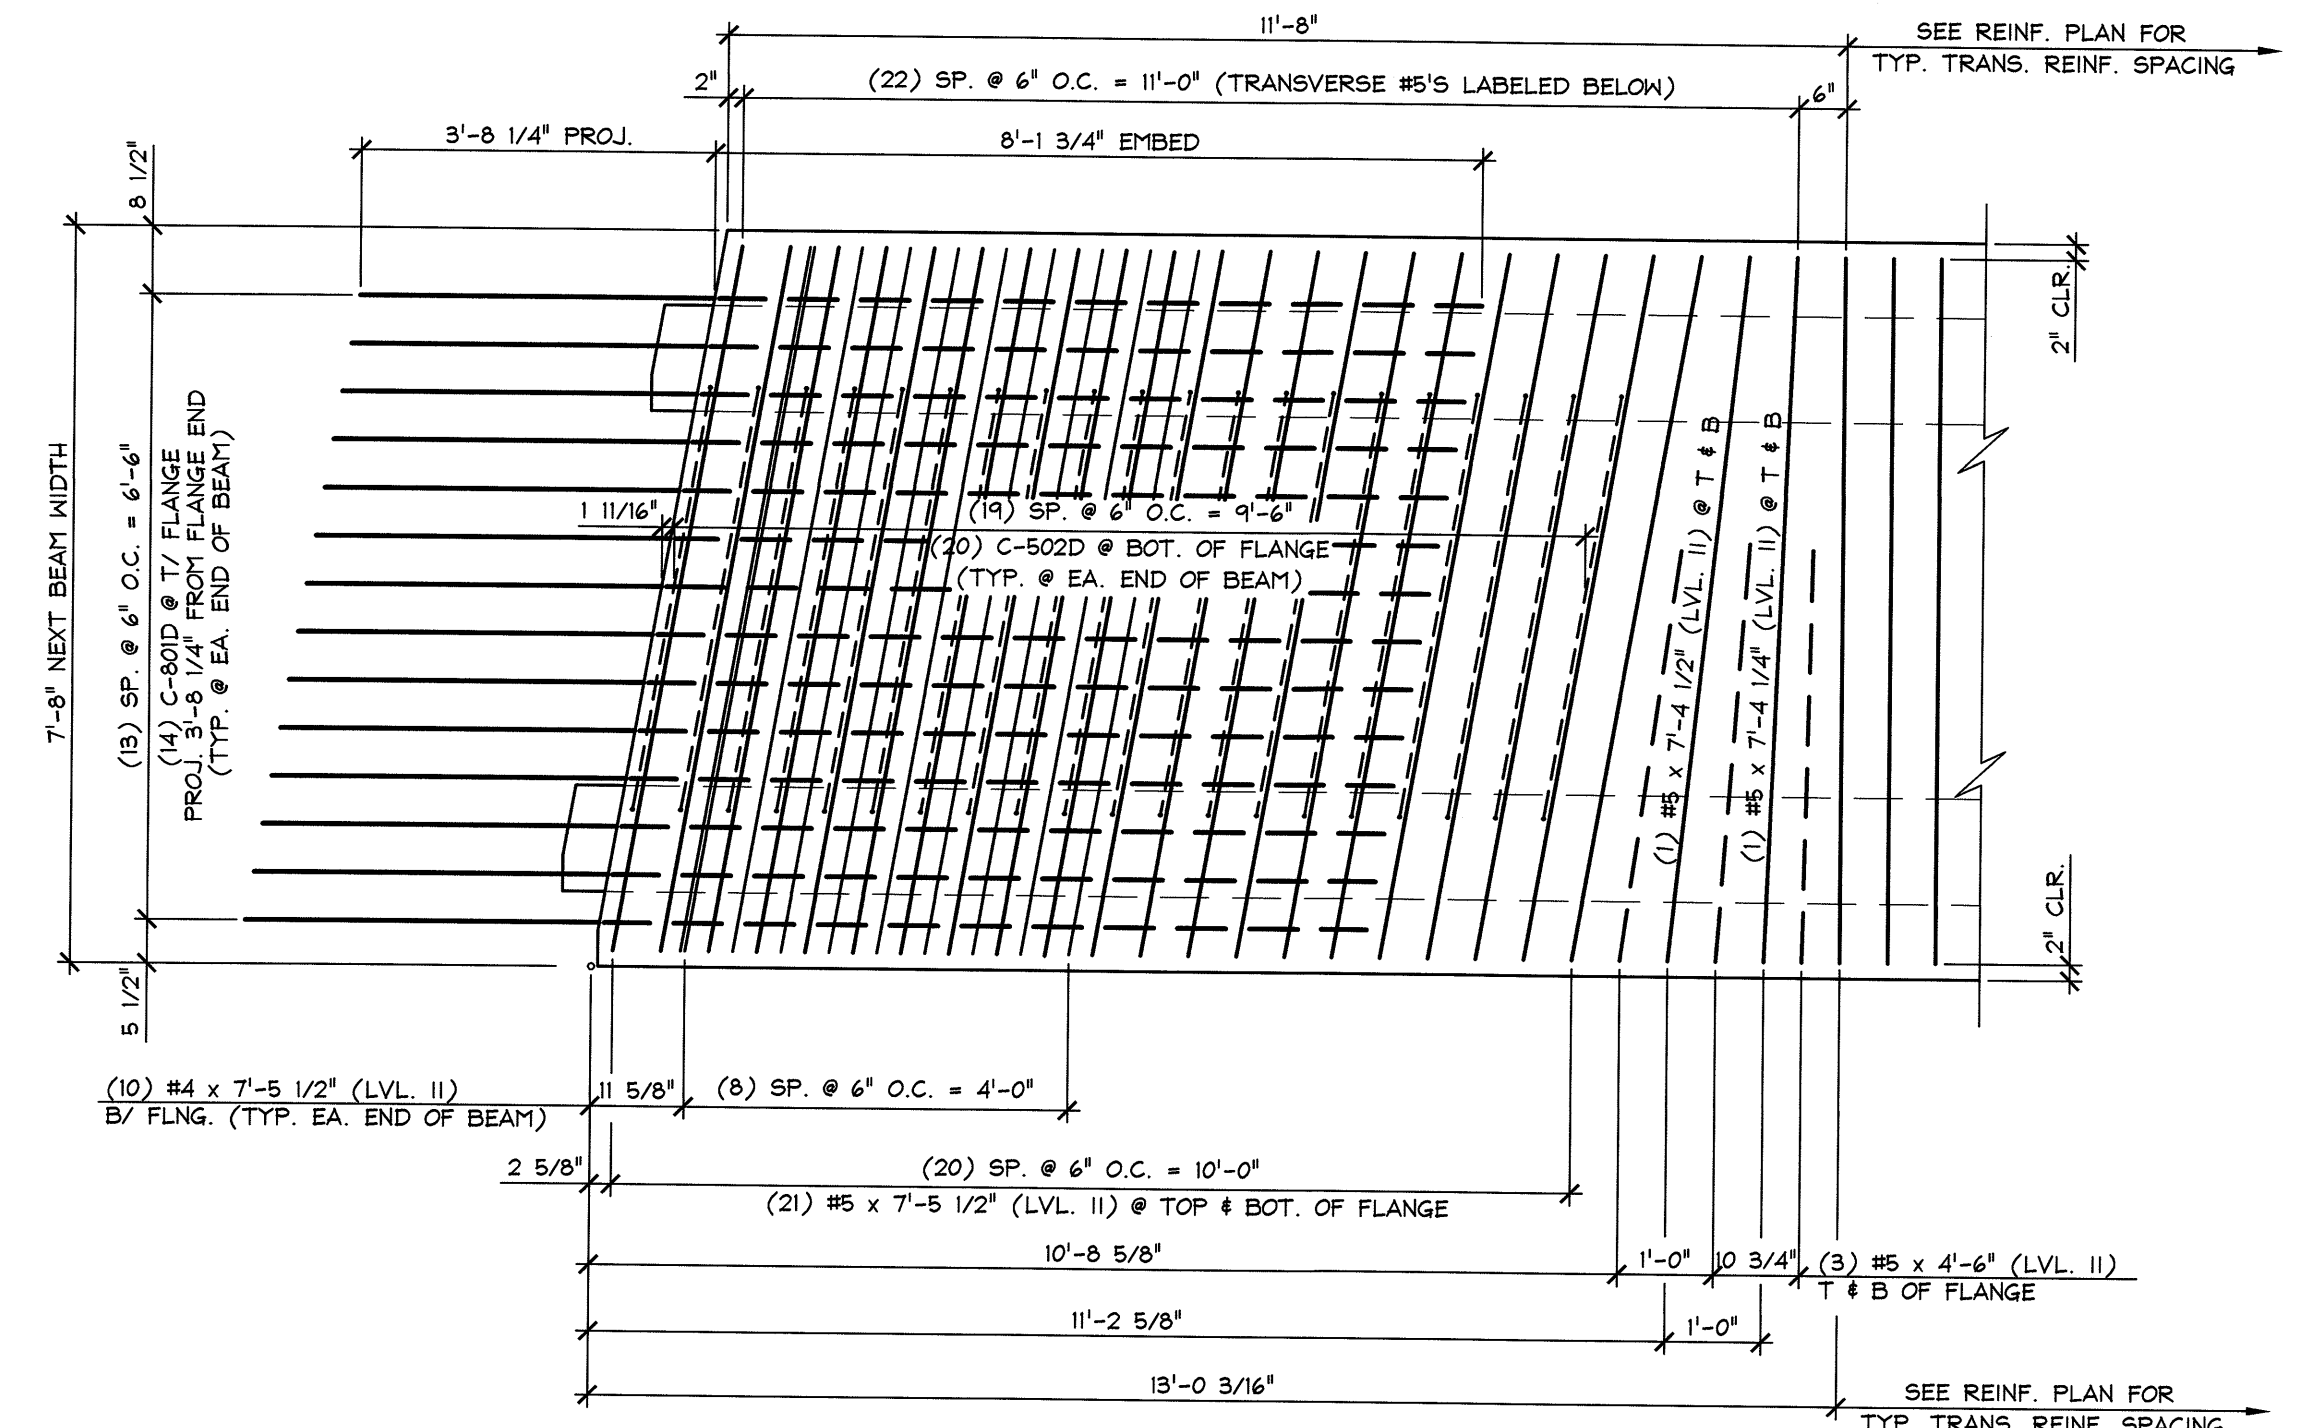 11'-8"
SEE REINF. PLAN FOR
TYP. TRANS. REINF. SPACING
2"
(22) SP. @ 6" O.C. = 11'-0" (TRANSVERSE #5'S LABELED BELOW)
6"
3'-8 1/4" PROJ.
8'-1 3/4" EMBED
8 1/2"
2" CLR.
7'-8" NEXT BEAM WIDTH
(13) SP. @ 6" O.C. = 6'-6"
(14) C-801D @ T/ FLANGE
PROJ. 3'-8 1/4" FROM FLANGE END
(TYP. @ EA. END OF BEAM)
1 11/16"
(19) SP. @ 6" O.C. = 9'-6"
(20) C-502D @ BOT. OF FLANGE
(TYP. @ EA. END OF BEAM)
(1) #5 x 7'-4 1/2" (LVL. II) @ T & B
(1) #5 x 7'-4 1/4" (LVL. II) @ T & B
2" CLR.
5 1/2"
(10) #4 x 7'-5 1/2" (LVL. II)
B/ FLNG. (TYP. EA. END OF BEAM)
11 5/8"
(8) SP. @ 6" O.C. = 4'-0"
2 5/8"
(20) SP. @ 6" O.C. = 10'-0"
(21) #5 x 7'-5 1/2" (LVL. II) @ TOP & BOT. OF FLANGE
10'-8 5/8"
1'-0"
10 3/4"
(3) #5 x 4'-6" (LVL. II)
T & B OF FLANGE
11'-2 5/8"
1'-0"
13'-0 3/16"
SEE REINF. PLAN FOR
TYP. TRANS. REINF. SPACING